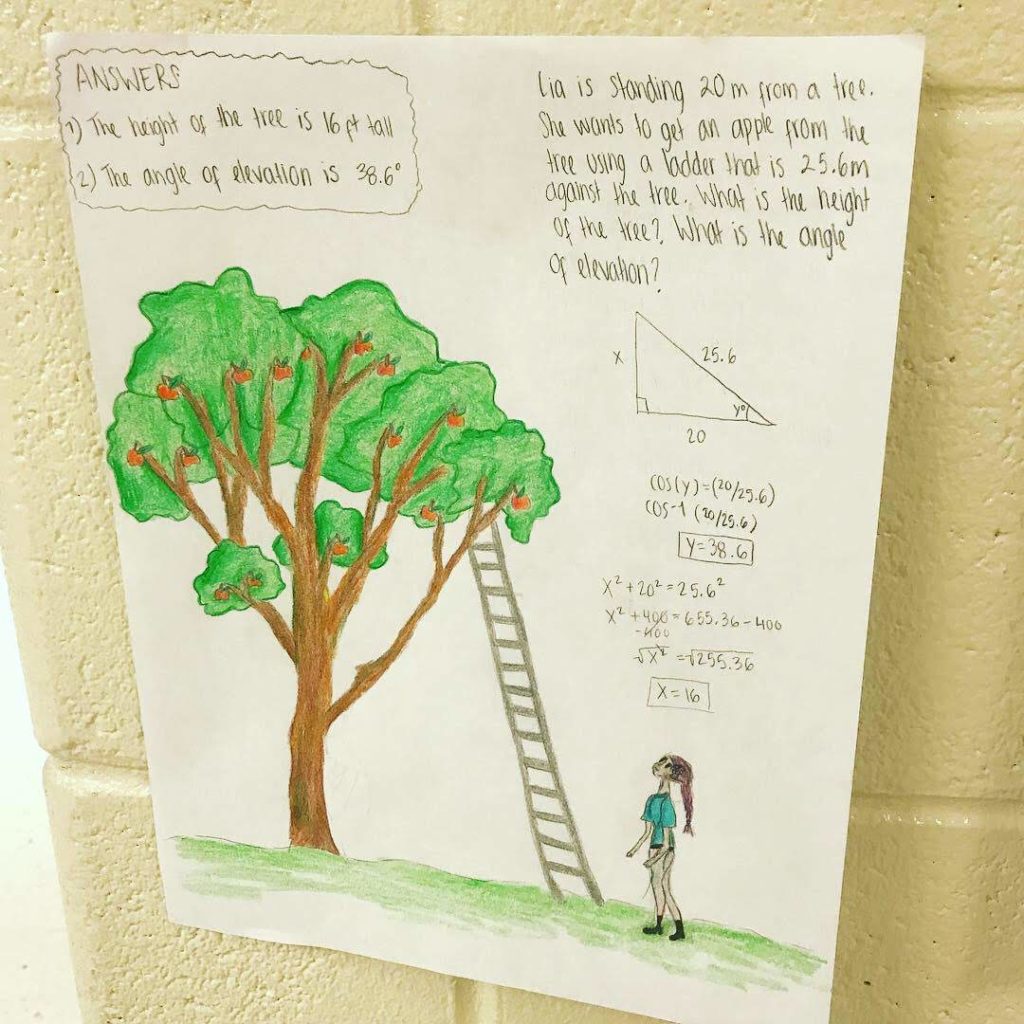 ANSWERS
1) The height of the tree is 16 ft tall
2) The angle of elevation is 38.6°
Lia is standing 20 m from a tree.
She wants to get an apple from the
tree using a ladder that is 25.6m
against the tree. What is the height
of the tree? What is the angle
of elevation?
x
25.6
y°
20
cos(y)=(20/25.6)
cos-1 (20/25.6)
y=38.6
x²+20²=25.6²
x²+400=655.36-400
-400
√x² =√255.36
x=16